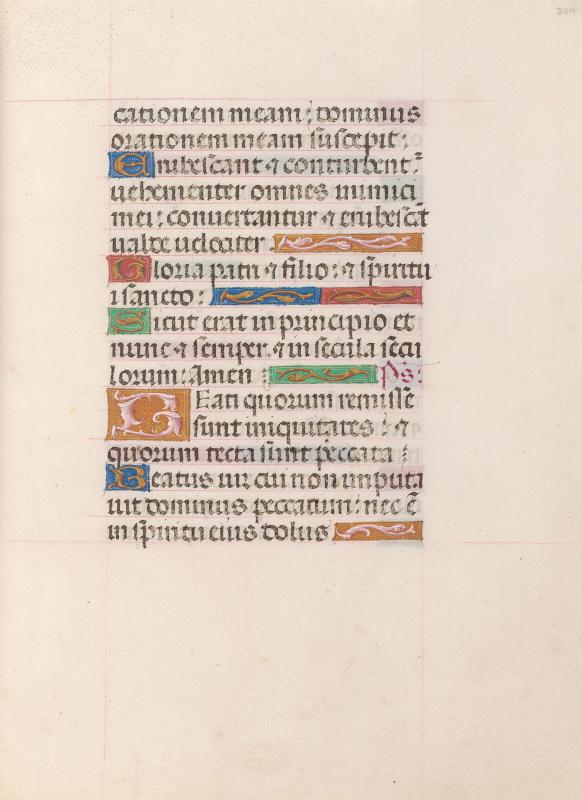 204
cationem meam: dominus
orationem meam suscepit:
Erubescant ⁊ conturbent²
uehementer omnes inimici
mei: conuertantur ⁊ erubescāt
ualde uelociter.
Gloria patri ⁊ filio: ⁊ spiritu
i sancto:
Sicut erat in principio et
nunc ⁊ semper. ⁊ in secula secu
lorum: Amen: Ps:
Eati quorum remisse
sunt iniquitates: ⁊
quorum tecta sunt peccata:
Beatus uir cui non imputa
uit dominus peccatum: nec ē
in spiritu eius dolus